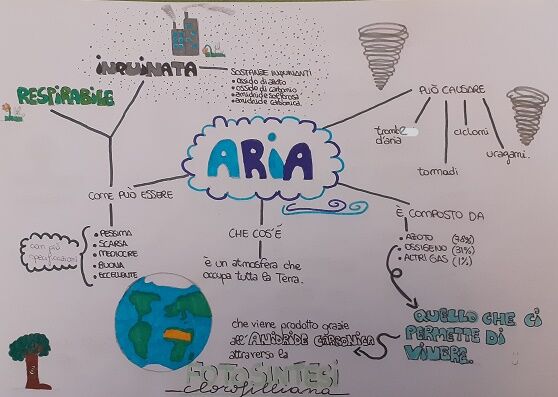 INQUINATA
RESPIRABILE
SOSTANZE INQUINANTI
• ossido di azoto
• ossido di carbonio
• anidride solforosa
• anidride carbonica
PUÒ CAUSARE
trombe
d'aria
tornadi
cicloni
uragani.
ARIA
COME PUÒ ESSERE
• PESSIMA
• SCARSA
• MEDIOCRE
• BUONA
• ECCELLENTE
con più
specificazioni
CHE COS'É
è un atmosfera che
occupa tutta la Terra.
È COMPOSTO DA
• AZOTO (78%)
• OSSIGENO (31%)
• ALTRI GAS (1%)
QUELLO CHE CI
PERMETTE DI
VIVERE.
che viene prodotto grazie
all'ANIDRIDE CARBONICA
attraverso la
FOTOSINTESI
clorofilliana